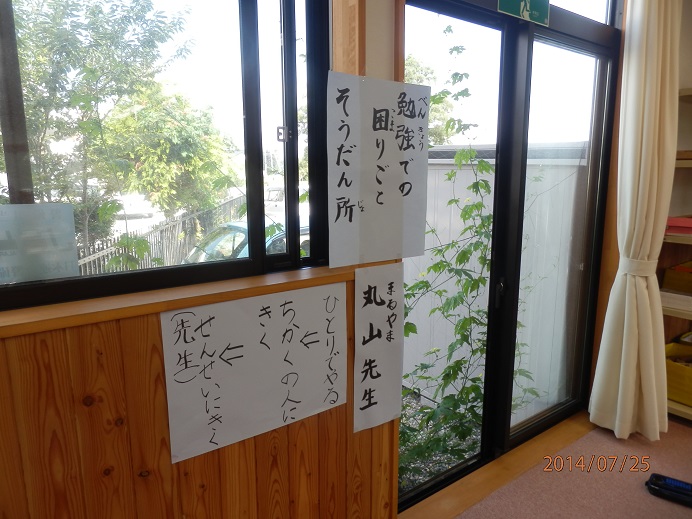 勉強での
べんきょう
困りごと
こま
そうだん所
じょ
まるやま
丸山先生
ひとりでやる
⇐
ちかくの人に
きく
⇐
せんせいにきく
(先生)
2014/07/25